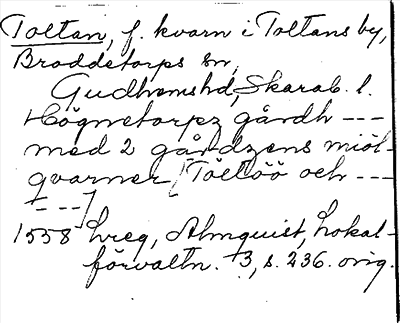 Toltan, f. kvarn i Toltans by,
Broddetorps sn,
Gudhems hd, Skarab. l.
Högnetorpz gårdh ---
med 2 gårdzens miöl-
qvarner [Töltöö och ---
---]
1558 hreg, Almquist, Lokal-
förvaltn. 3, s. 236. orig.